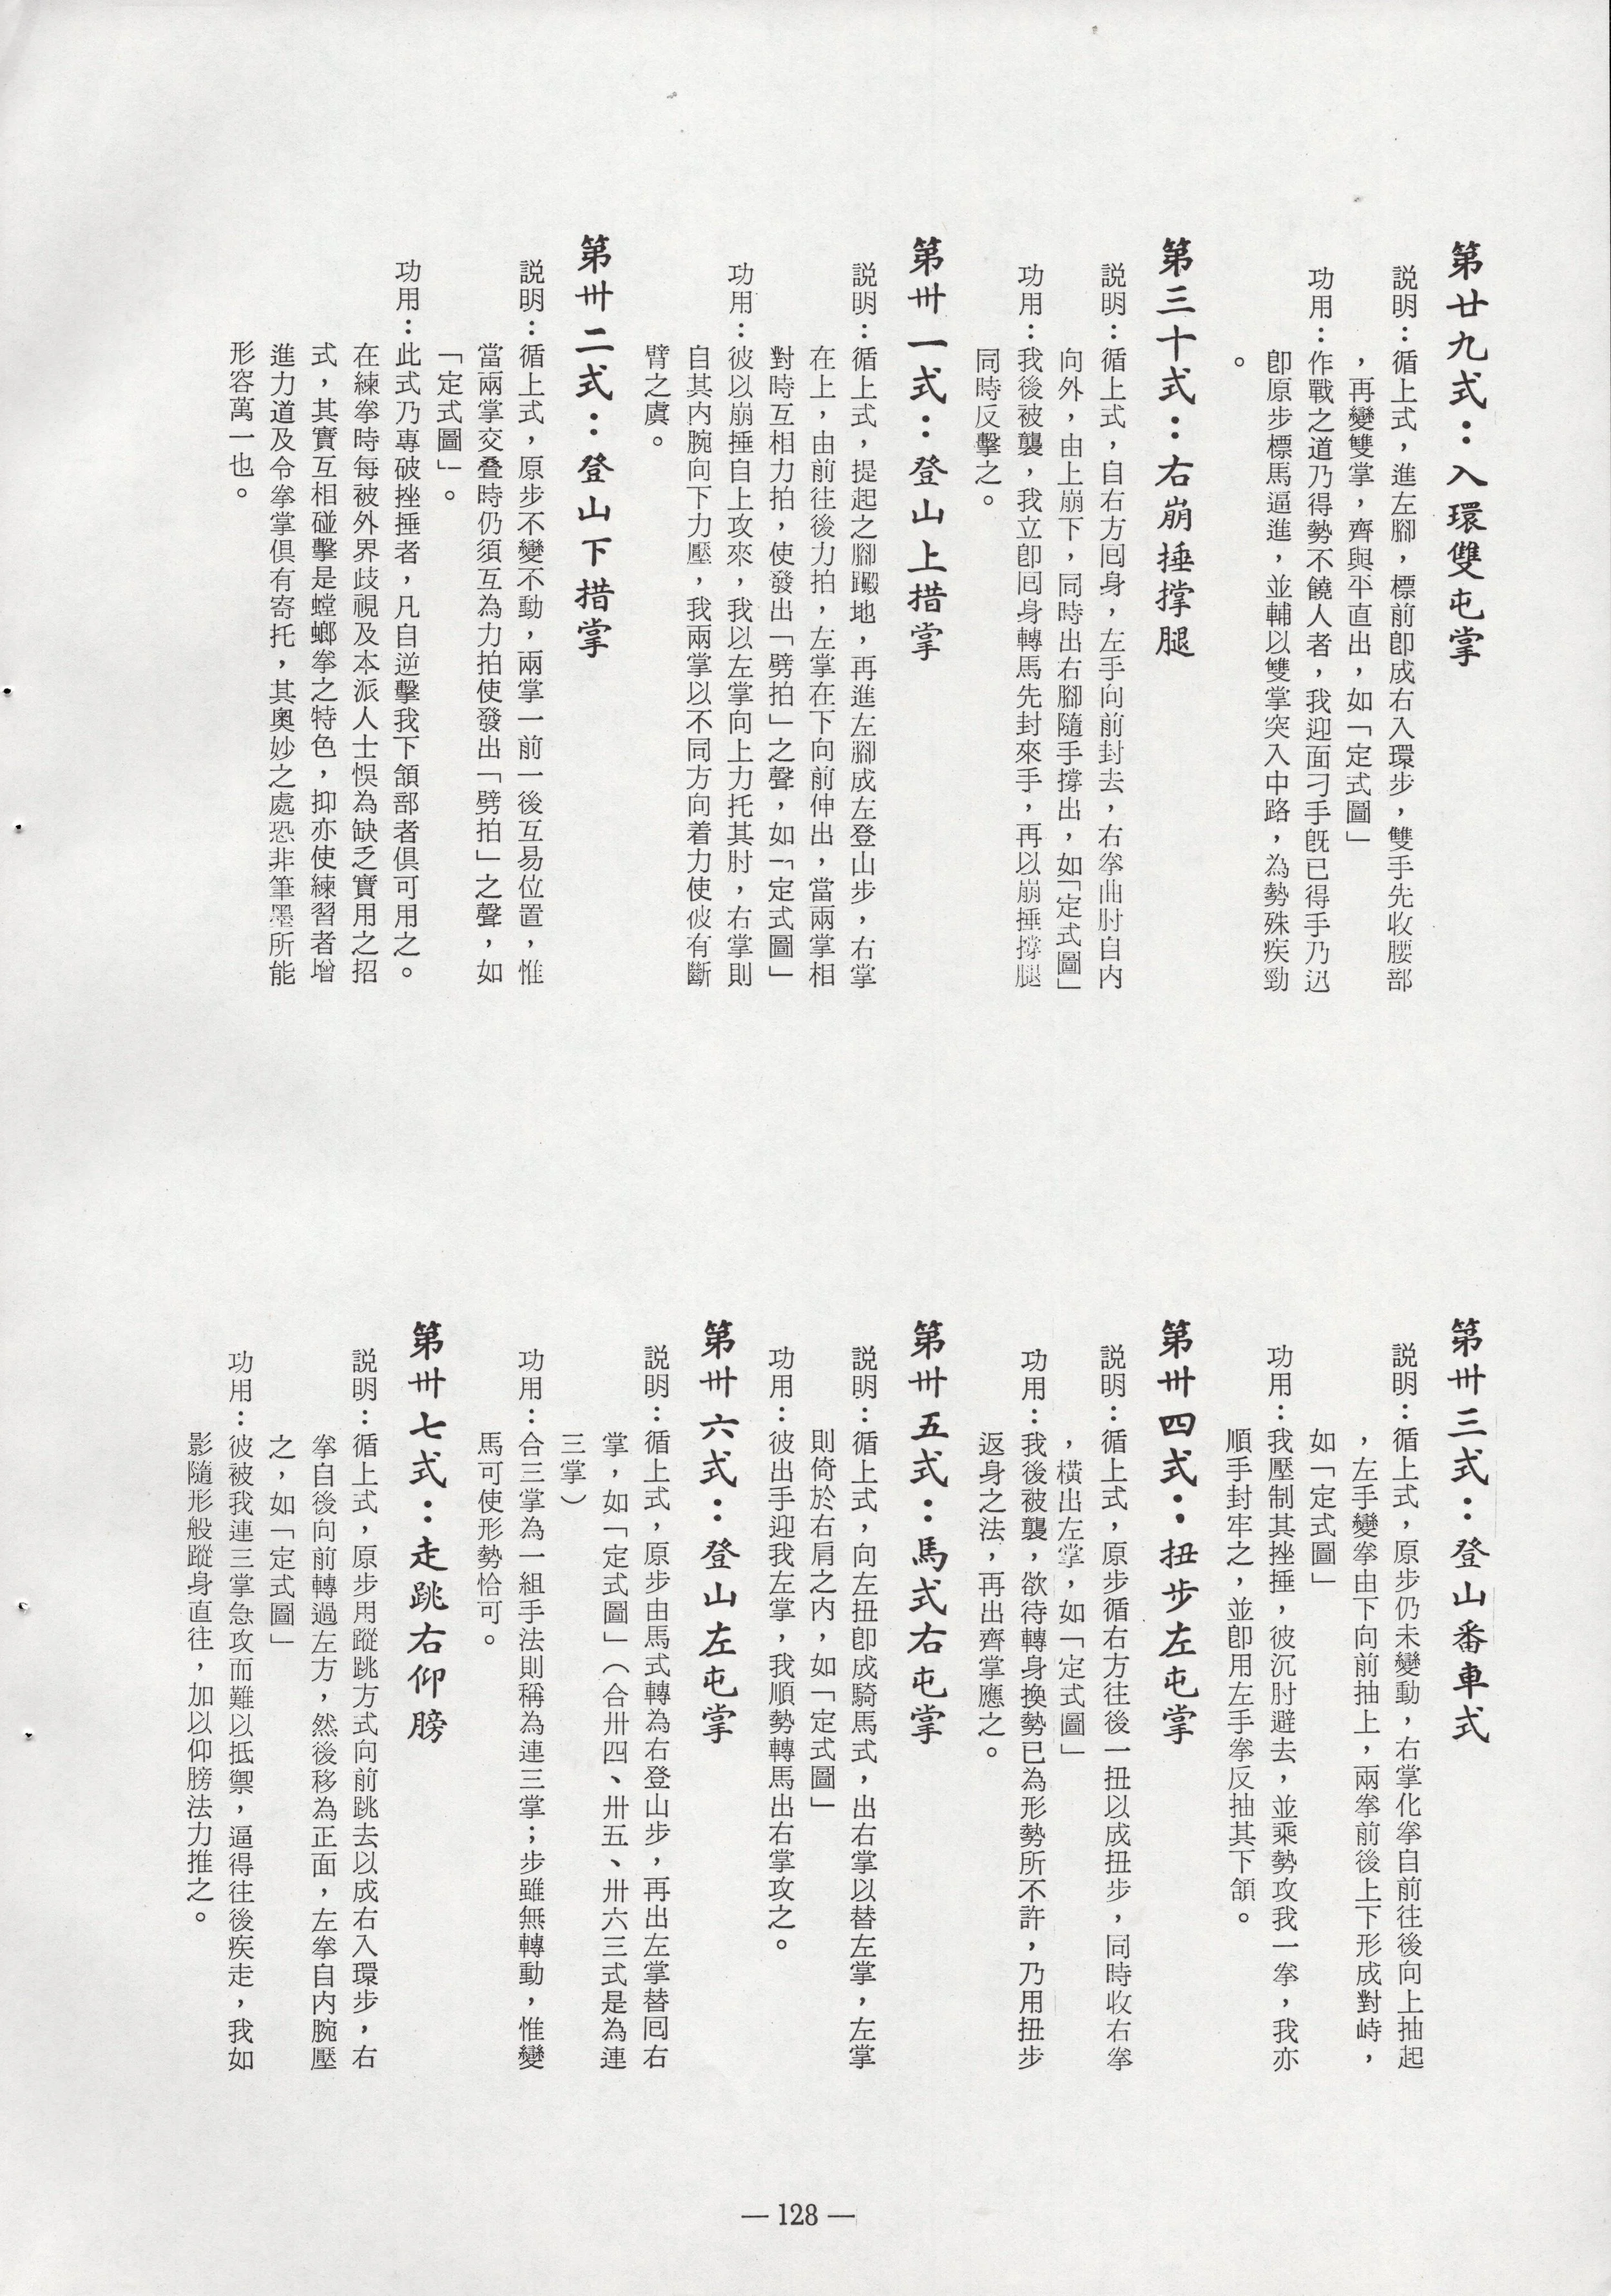 第廿九式：入環雙屯掌
説明：循上式，進左腳，標前卽成右入環步，雙手先收腰部
，再變雙掌，齊與平直出，如「定式圖」
功用：作戰之道乃得勢不饒人者，我迎面刁手旣已得手乃迅
卽原步標馬逼進，並輔以雙掌突入中路，為勢殊疾勁
。
第三十式：右崩捶撐腿
説明：循上式，自右方囘身，左手向前封去，右拳曲肘自内
向外，由上崩下，同時出右腳隨手撐出，如「定式圖」
功用：我後被襲，我立卽囘身轉馬先封來手，再以崩捶撐腿
同時反擊之。
第卅一式：登山上措掌
説明：循上式，提起之腳踏地，再進左腳成左登山步，右掌
在上，由前往後力拍，左掌在下向前伸出，當兩掌相
對時互相力拍，使發出「劈拍」之聲，如「定式圖」
功用：彼以崩捶自上攻來，我以左掌向上力托其肘，右掌則
自其内腕向下力壓，我兩掌以不同方向着力使彼有斷
臂之虞。
第卅二式：登山下措掌
説明：循上式，原步不變不動，兩掌一前一後互易位置，惟
當兩掌交叠時仍須互為力拍使發出「劈拍」之聲，如
「定式圖」。
功用：此式乃專破挫捶者，凡自逆擊我下頷部者俱可用之。
在練拳時每被外界歧視及本派人士悞為缺乏實用之招
式，其實互相碰擊是螳螂拳之特色，抑亦使練習者增
進力道及令拳掌俱有寄托，其奧妙之處恐非筆墨所能
形容萬一也。
第卅三式：登山番車式
説明：循上式，原步仍未變動，右掌化拳自前往後向上抽起
，左手變拳由下向前抽上，兩拳前後上下形成對峙，
如「定式圖」
功用：我壓制其挫捶，彼沉肘避去，並乘勢攻我一拳，我亦
順手封牢之，並卽用左手拳反抽其下頷。
第卅四式：扭步左屯掌
説明：循上式，原步循右方往後一扭以成扭步，同時收右拳
，橫出左掌，如「定式圖」
功用：我後被襲，欲待轉身換勢已為形勢所不許，乃用扭步
返身之法，再出齊掌應之。
第卅五式：馬式右屯掌
説明：循上式，向左扭卽成騎馬式，出右掌以替左掌，左掌
則倚於右肩之内，如「定式圖」
功用：彼出手迎我左掌，我順勢轉馬出右掌攻之。
第卅六式：登山左屯掌
説明：循上式，原步由馬式轉為右登山步，再出左掌替囘右
掌，如「定式圖」（合卅四、卅五、卅六三式是為連
三掌）
功用：合三掌為一組手法則稱為連三掌；步雖無轉動，惟變
馬可使形勢恰可。
第卅七式：走跳右仰膀
説明：循上式，原步用蹤跳方式向前跳去以成右入環步，右
拳自後向前轉過左方，然後移為正面，左拳自内腕壓
之，如「定式圖」
功用：彼被我連三掌急攻而難以抵禦，逼得往後疾走，我如
影隨形般蹤身直往，加以仰膀法力推之。
— 128 —